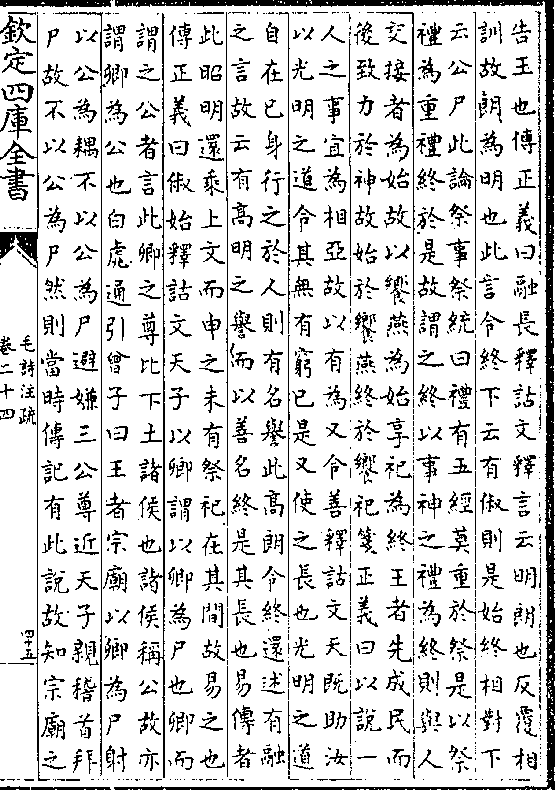 告王也傳正義曰融長釋詁文釋言云明朗也反覆相
訓故朗為明也此言令終下云有俶則是始終相對下
云公尸此論祭事祭統曰禮有五經莫重於祭是以祭
禮為重禮終於是故謂之終以事神之禮為終則與人
交接者為始故以饗燕為始享祀為終王者先成民而
後致力於神故始於饗燕終於饗祀箋正義曰以說一
人之事宜為相亞故以有為又令善釋詁文天既助汝
以光明之道令其無有窮已是又使之長也光明之道
自在已身行之於人則有名譽此高朗令終還述有融
之言故云有高明之譽而以善名終是其長也易傳者
此昭明還乘上文而申之未有祭祀在其間故易之也
傳正義曰俶始釋詁文天子以卿謂以卿為尸也卿而
謂之公者言此卿之尊比下土諸侯也諸侯稱公故亦
謂卿為公也白虎通引曾子曰王者宗廟以卿為尸射
以公為耦不以公為尸避嫌三公尊近天子親稽首拜
尸故不以公為尸然則當時傳記有此說故知宗廟之
欽定四庫全書
毛詩注疏
卷二十四
四十五